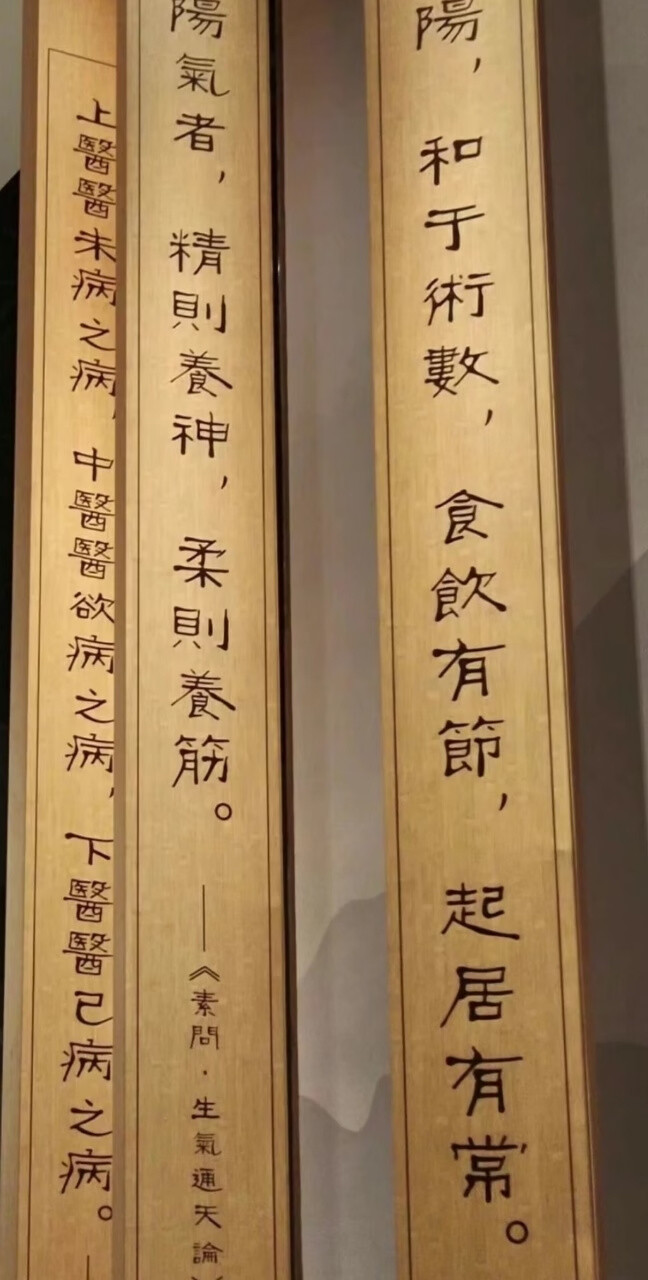 陽，和于術數，食飲有節，起居有常。
陽氣者，精則養神，柔則養筋。——《素問·生氣通天論》
上醫醫未病之病，中醫醫欲病之病，下醫醫已病之病。